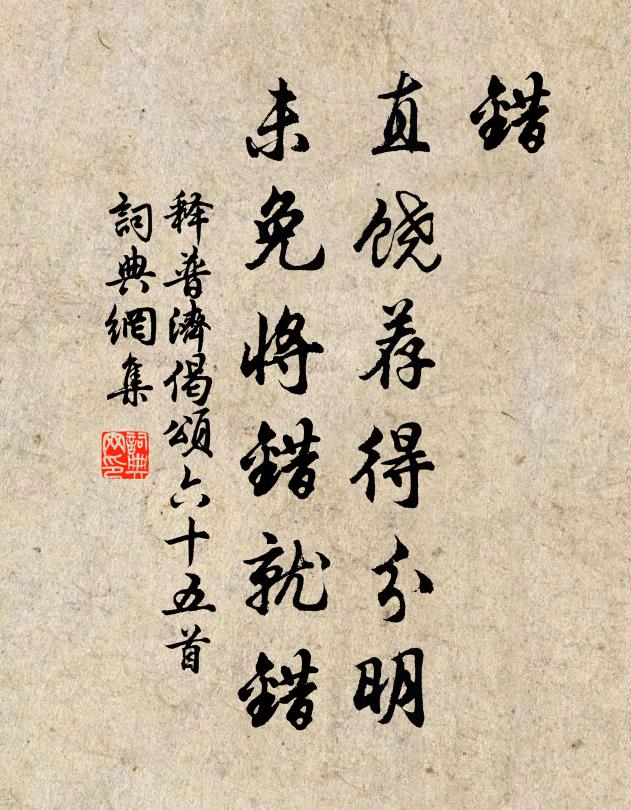 錯
直饶荐得分明
未免将錯就錯
释普濟偈頌六十五首
詞典網集
詞典网印